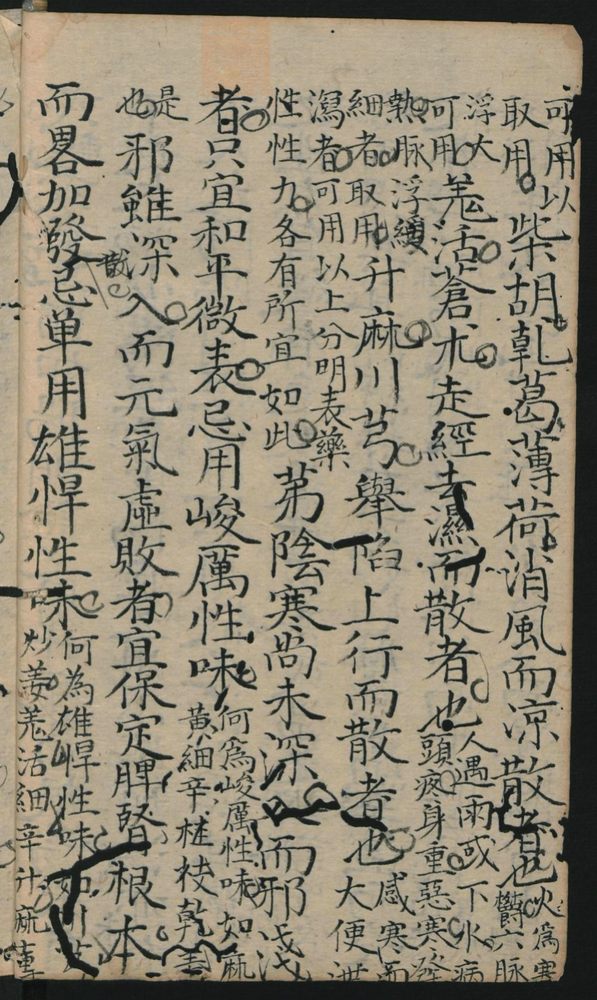 可用以
取用柴胡乹葛薄荷消風而凉散者也火為寒
欝六脉
浮大
可用羗活蒼朮走經去濕而散者也人遇雨或下水病
頭疼身重惡寒發
熱脉浮緩
細者取用升麻川芎舉陷上行而散者也感寒而
大便泄
瀉者可用以上分明表藥
性性九各有所宜如此苐陰寒尚未深而邪浅
者只宜和平微表忌用峻厲性味何為峻厲性味如麻
黃細辛桂枝乾姜
是
也邪雖深入而元氣虛敗者宜保定脾腎根本
而畧加發散忌单用雄悍性味何為雄悍性味如川芎
炒姜羗活細辛升麻